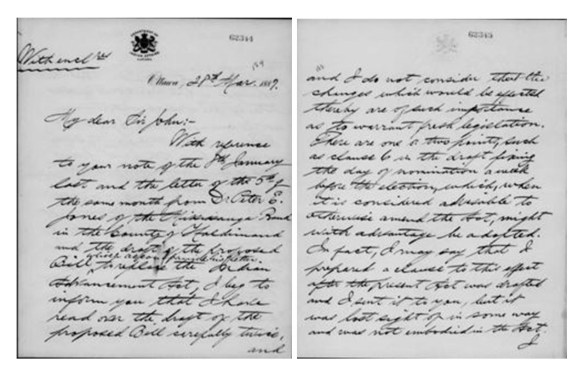 62344
With encl res
Ottawa, 28th Mar. 1889.
My dear Sir John:-
With reference
to your note of the 8th January
last and the letter of the 5th of
the same month from Dr. Peter E.
Jones of the Mississauga Band
in the County of Haldimand
and the draft of the proposed
Bill to replace the Indian
Advancement Act, I beg to
inform you that I have
read over the draft of the
proposed Bill carefully twice,
and
62345
and I do not consider that the
changes which would be effected
thereby are of such importance
as to warrant fresh legislation.
There are one or two points, such
as clause 6 in the draft fixing
the day of nomination a week
before the election, which, when
it is considered advisable to
otherwise amend the Act, might
with advantage be adopted.
In fact, I may say that I
prepared a clause to this effect
after the present Act was drafted
and I sent it to you, but it
was lost sight of in some way
and was not embodied in the Act.
I